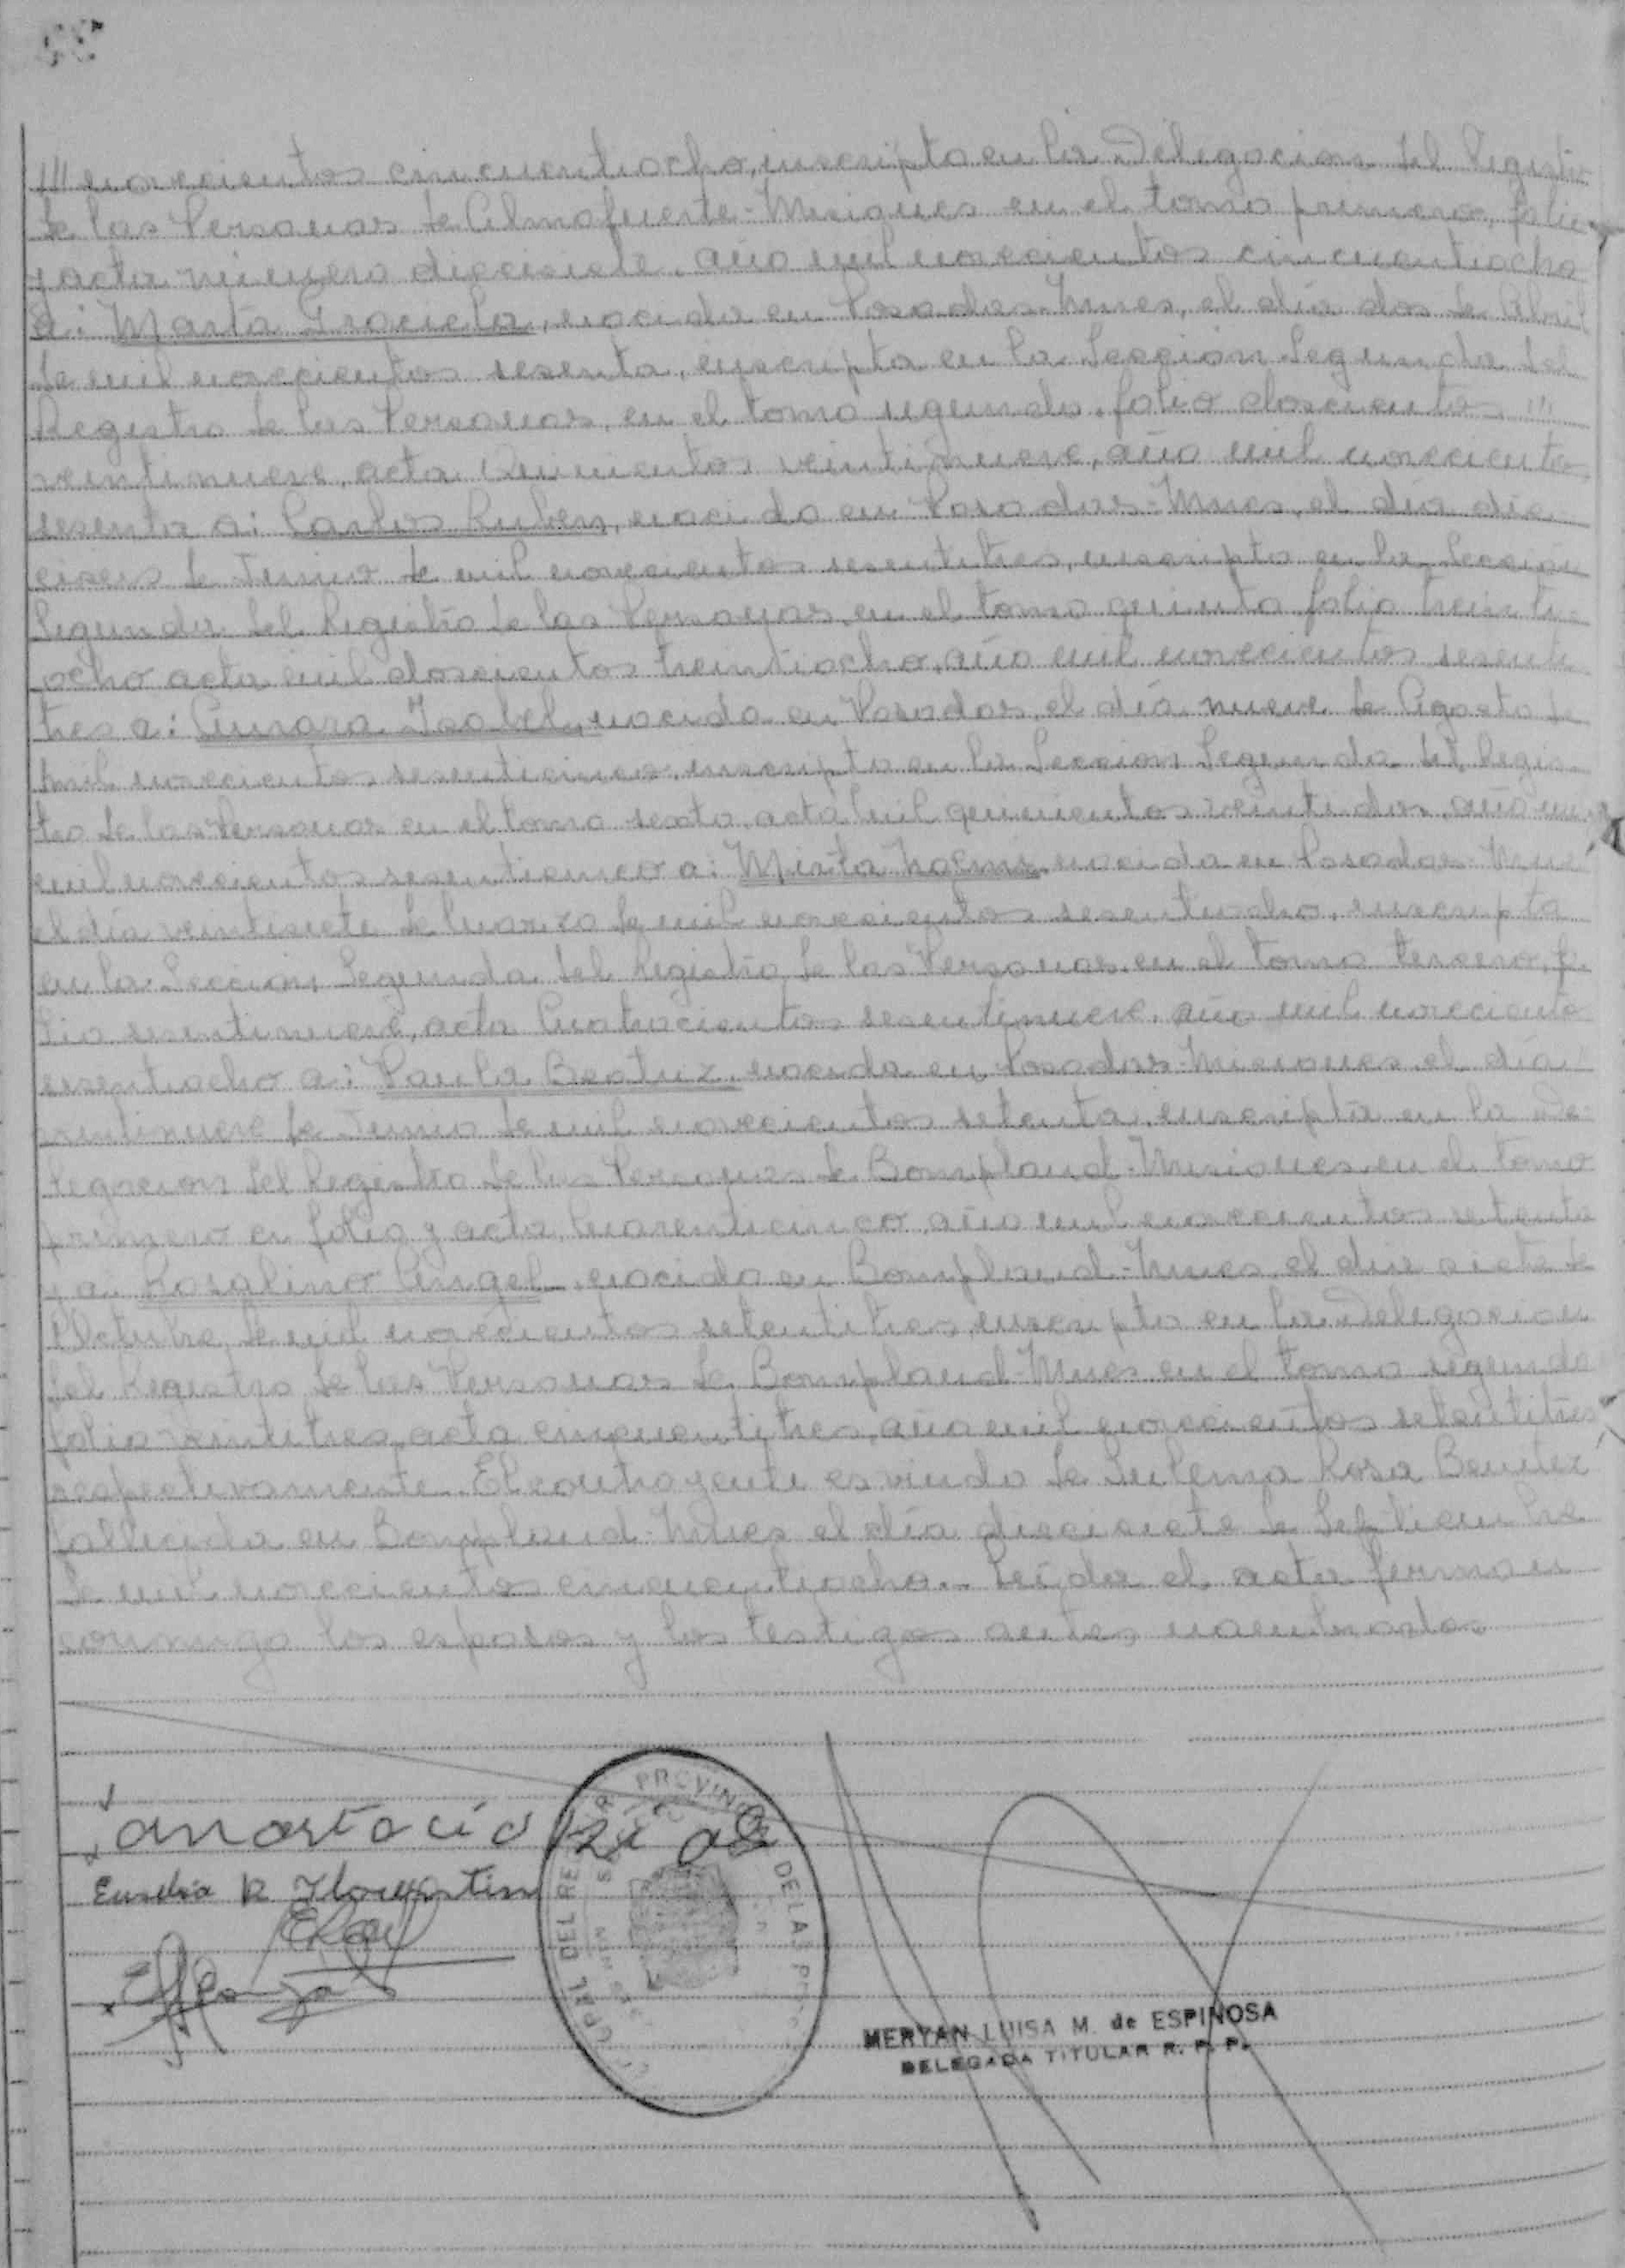 /// novecientos cincuentiocho, inscripta en la Delegación del Registro
de las Personas de Almafuerte-Misiones en el tomo primero, folio
y acta número diecisiete, año mil novecientos cincuentiocho
a: Marta Graciela, nacida en Posadas-Mnes, el día dos de Abril
de mil novecientos sesenta, inscripta en la Sección Segunda del
Registro de las Personas, en el tomo segundo, folio doscientos ///
veintinueve, acta Quinientos veintinueve, año mil novecientos
sesenta a: Carlos Ruben, nacido en Posadas-Mnes, el día die
ciseis de Junio de mil novecientos sesentitres, inscripto en la Sección
Segunda del Registro de las Personas, en el tomo quinto folio treinti
ocho acta mil doscientos treintiocho, año mil novecientos sesenti
tres a: Isabel, nacida en Posadas, el día nueve de Agosto de
mil novecientos sesenticinco, inscripta en la Sección Segunda del Regis
tro de las Personas en el tomo sexto, acta mil quinientos veintidos, año
mil novecientos sesenticinco a: Mirta Noemi nacida en Posadas-Mnes
el día veintisiete de Marzo de mil novecientos sesentiocho, inscripta
en la Sección Segunda del Registro de las Personas, en el tomo tercero, fo
lio sesentinueve, acta Cuatrocientos sesentinueve, año mil novecientos
sesentiocho a: Paula Beatriz, nacida en Posadas-Misiones el día
veintinueve de Junio de mil novecientos setenta, inscripta en la De
legación del Registro de las Personas de Bompland-Misiones, en el tomo
primero folio y acta cuarenticinco, año mil novecientos setenta
y a: Rosalino Angel, nacido en Bompland-Mnes, el día siete de
Octubre de mil novecientos setentitres, inscripto en la Delegación
del Registro de las Personas de Bompland-Mnes en el tomo segundo
folio veintitres, acta cincuentitres, año mil novecientos setentitres
respectivamente. El contrayente es viudo de Zulema Rosa Benitez
fallecida en Bompland-Mnes el día diecisiete de Septiembre
de mil novecientos cincuentiocho.- Leída el acta firman
conmigo los esposos y los testigos antes nombrados.
anastacio
PROVINCIAL DE LAS
MERYAN LUISA M. de ESPINOSA
DELEGADA TITULAR R. P. P.